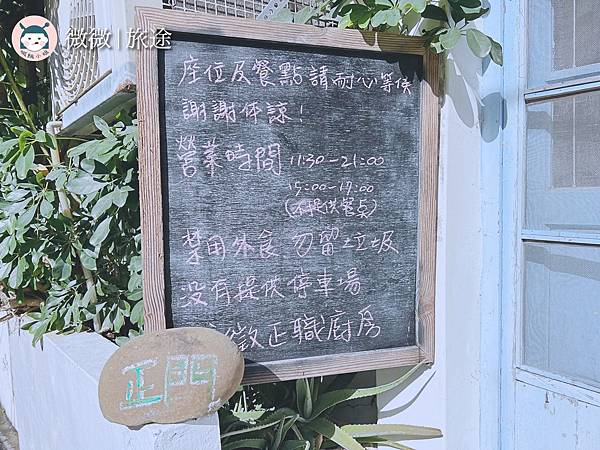 微微|旅途
座位及餐點請耐心等候
謝謝体諒!
營業時間 11:30-21:00
15:00-17:00
(不提供餐点)
禁用外食 勿留垃圾
沒有提供停車場
徵正職廚房
正門